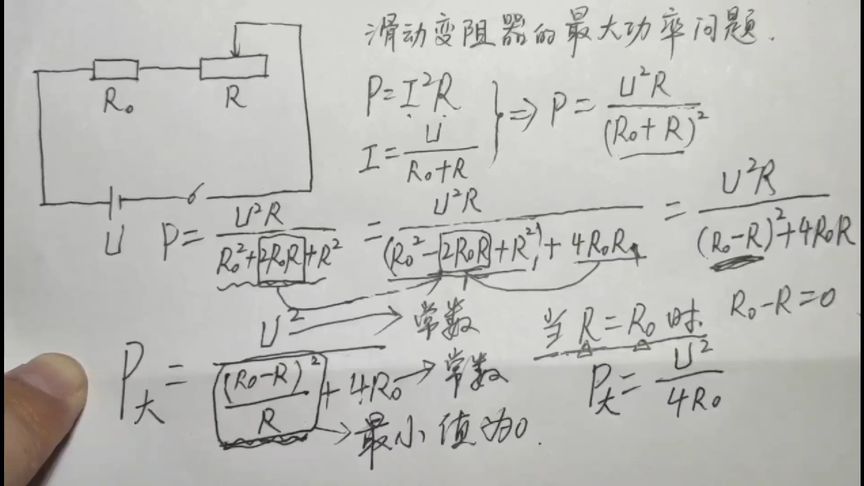 滑动变阻器的最大功率问题.
R₀ R
P=I²R
I=U/(R₀+R)
} ⇒ P=U²R/(R₀+R)²
U
P=U²R/(R₀²+2R₀R+R²) = U²R/((R₀²-2R₀R+R²)+4R₀R) = U²R/((R₀-R)²+4R₀R)
P大=U²/((R₀-R)²/R+4R₀)
→常数
→常数
→最小值为0.
当R=R₀时. R₀-R=0
P大=U²/4R₀